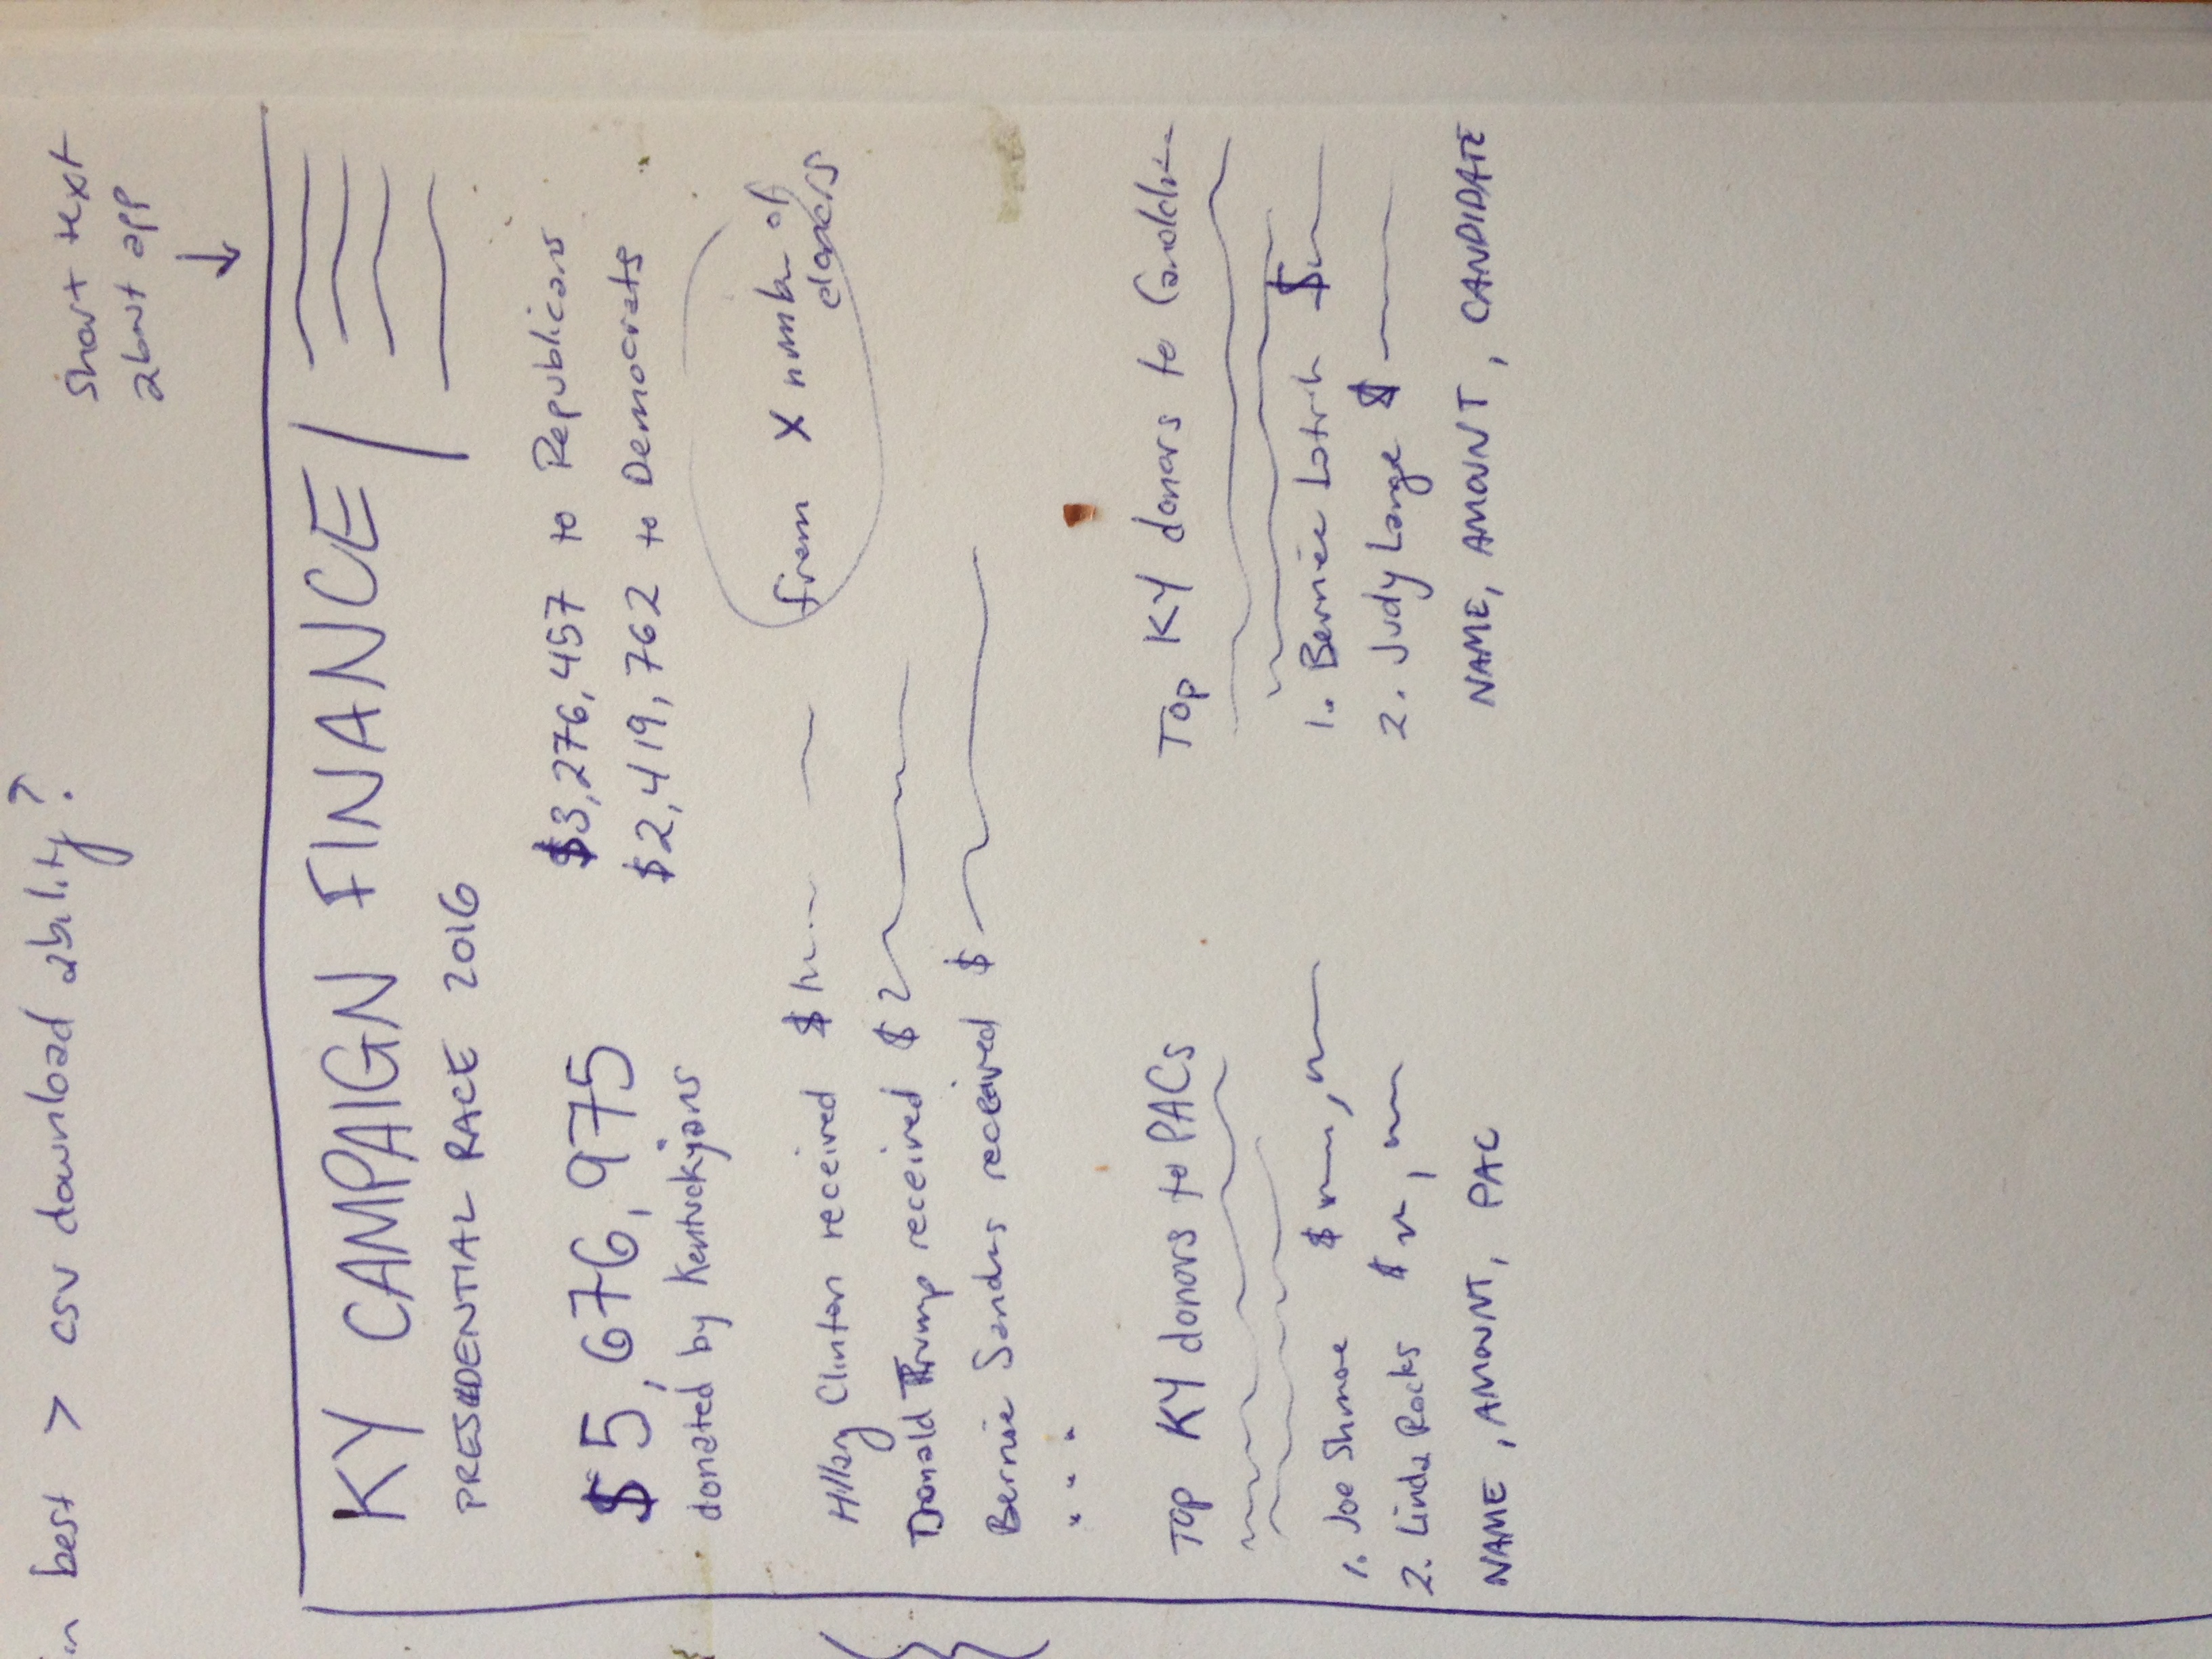 in best > csv download ability?
short text
about app
KY CAMPAIGN FINANCE
PRESIDENTIAL RACE 2016
$5,676,975
donated by Kentuckyians
$3,276,457 to Republicans
$2,419,762 to Democrats
Hillary Clinton received $1
from X number of
donors
Donald Trump received $2
Bernie Sanders received $
...
Top KY donors to PACs
1. Joe Shmoe $ ,
2. Linda Rocks $ ,
NAME, AMOUNT, PAC
Top KY donors to
1. Bernie $
2. Judy Lange $
NAME, AMOUNT, CANDIDATE